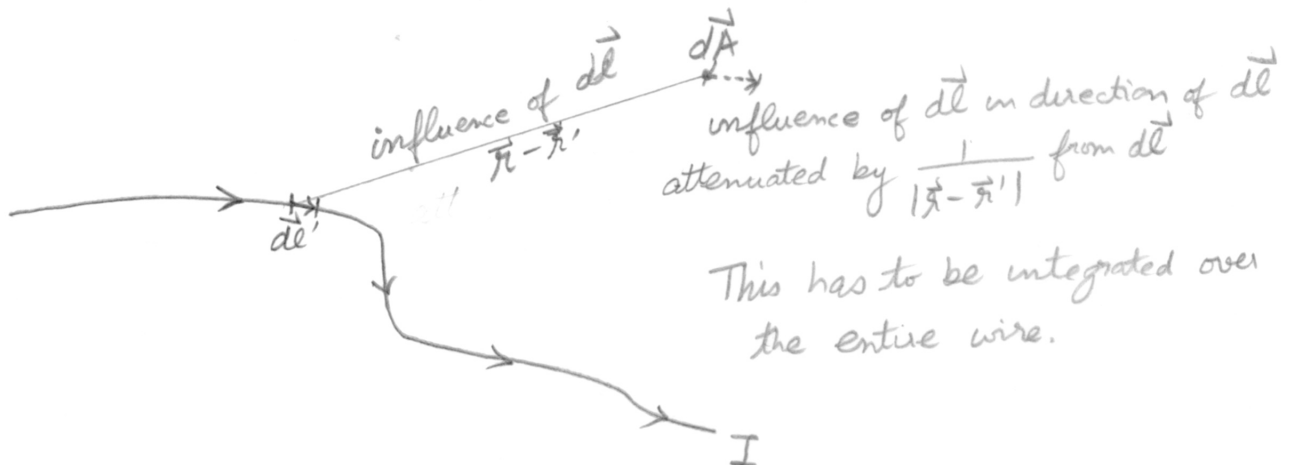 influence of dl⃗
r⃗ - r⃗'
dA⃗
influence of dl⃗ in direction of dl⃗
attenuated by 1/|r⃗ - r⃗'| from dl⃗
dl⃗'
This has to be integrated over
the entire wire.
I